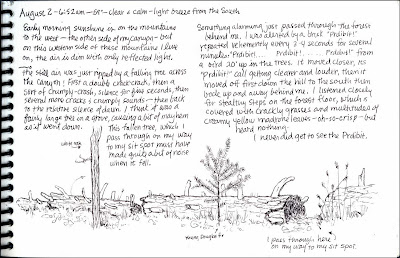 August 2 - 6:52 a.m. - 60° - clear & calm - light breeze from the South
Early morning sunshine is on the mountains
to the west - the other side of my canyon - but
on this western side of these mountains I live
on, the air is dim with only reflected light.
the still air was just ripped by a falling tree across
the canyon: first a double chack-chack, then a
sort of crumply-crash, silence for five seconds, then
several more cracks & crumply sounds - then back
to the restive silence of dawn. I think it was a
fairly large tree in a grove, causing a bit of mayhem
as it went down.
This fallen tree, which I
pass through on my way
to my sit spot must have
made quite a bit of noise
when it fell.
Something alarming just passed through the forest
behind me. I was alerted by a brisk "Pridibit!"
repeated vehemently every 3-4 seconds for several
minutes. "Pridibit! ..... Pridibit! ..... Pridibit!" from
a bird 20' up in the trees. It moved closer, its
"pridibit!" call getting clearer and louder, then it
moved off first down the hill to the south then
back up and away behind me. I listened closely
for stealthy steps on the forest floor, which is
covered with crackly grasses and multitudes of
creamy yellow madrone leaves - oh-so-crisp - but
heard nothing.
I never did get to see the Pridibit.
young Douglas fir
I pass through here
on my way to my sit spot.